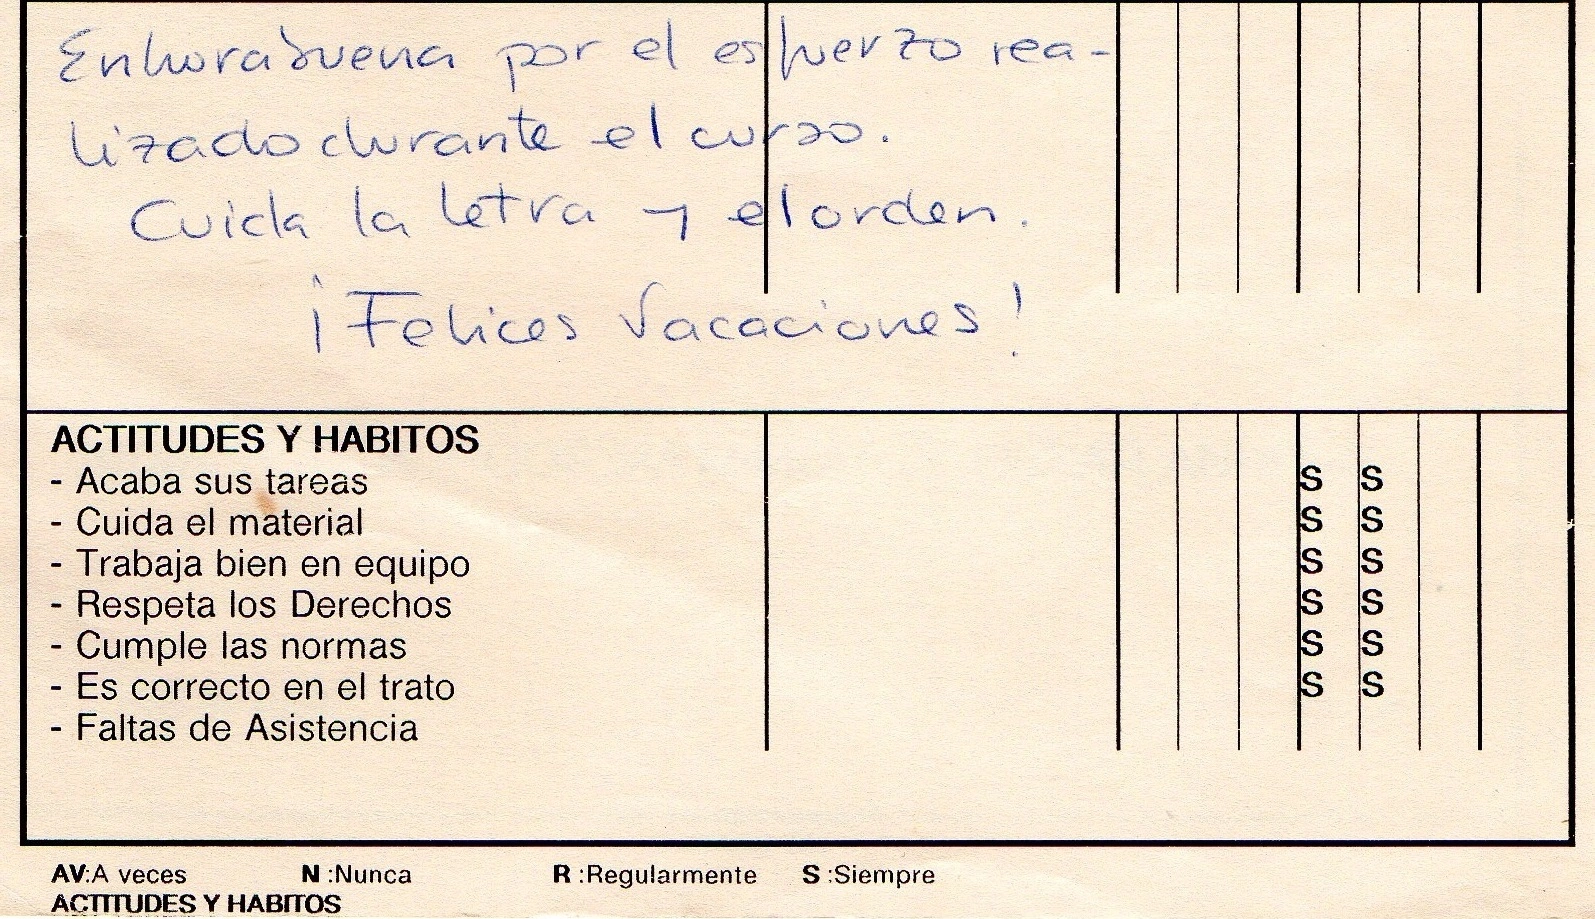 Enhorabuena por el esfuerzo rea-
lizado durante el curso.
Cuida la letra y el orden.
¡Felices Vacaciones!
ACTITUDES Y HABITOS
- Acaba sus tareas S S
- Cuida el material S S
- Trabaja bien en equipo S S
- Respeta los Derechos S S
- Cumple las normas S S
- Es correcto en el trato S S
- Faltas de Asistencia
AV:A veces N :Nunca R :Regularmente S :Siempre
ACTITUDES Y HABITOS